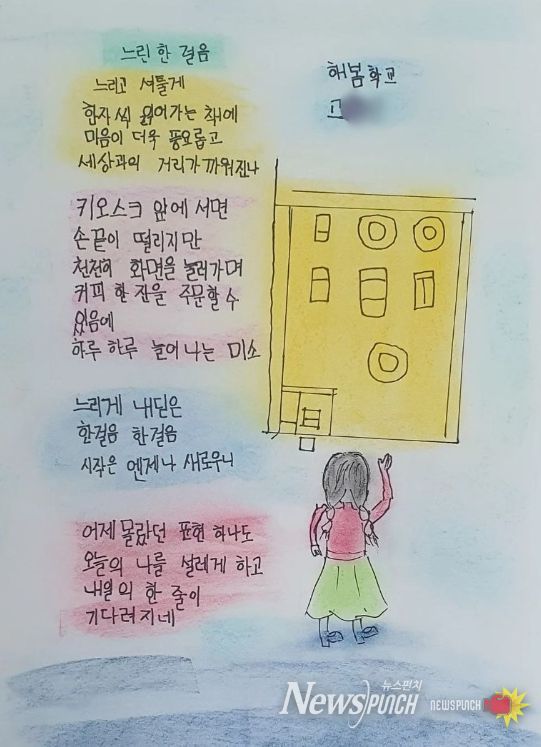 느린 한 걸음
해봄학교
고
느리고 서툴게
한자씩 읽어가는 책에
마음이 더욱 풍요롭고
세상과의 거리가 까워진나
키오스크 앞에 서면
손끝이 떨리지만
천천히 화면을 눌러가며
커피 한 잔을 주문할 수
있음에
하루 하루 늘어나는 미소
느리게 내딛은
한걸음 한걸음
시작은 엔제나 새로우니
어제 몰랐던 표현 하나도
오늘의 나를 설레게 하고
내일의 한 줄이
기다려지네
뉴스펀치
NEWSPUNCH
NEWSPUNCH